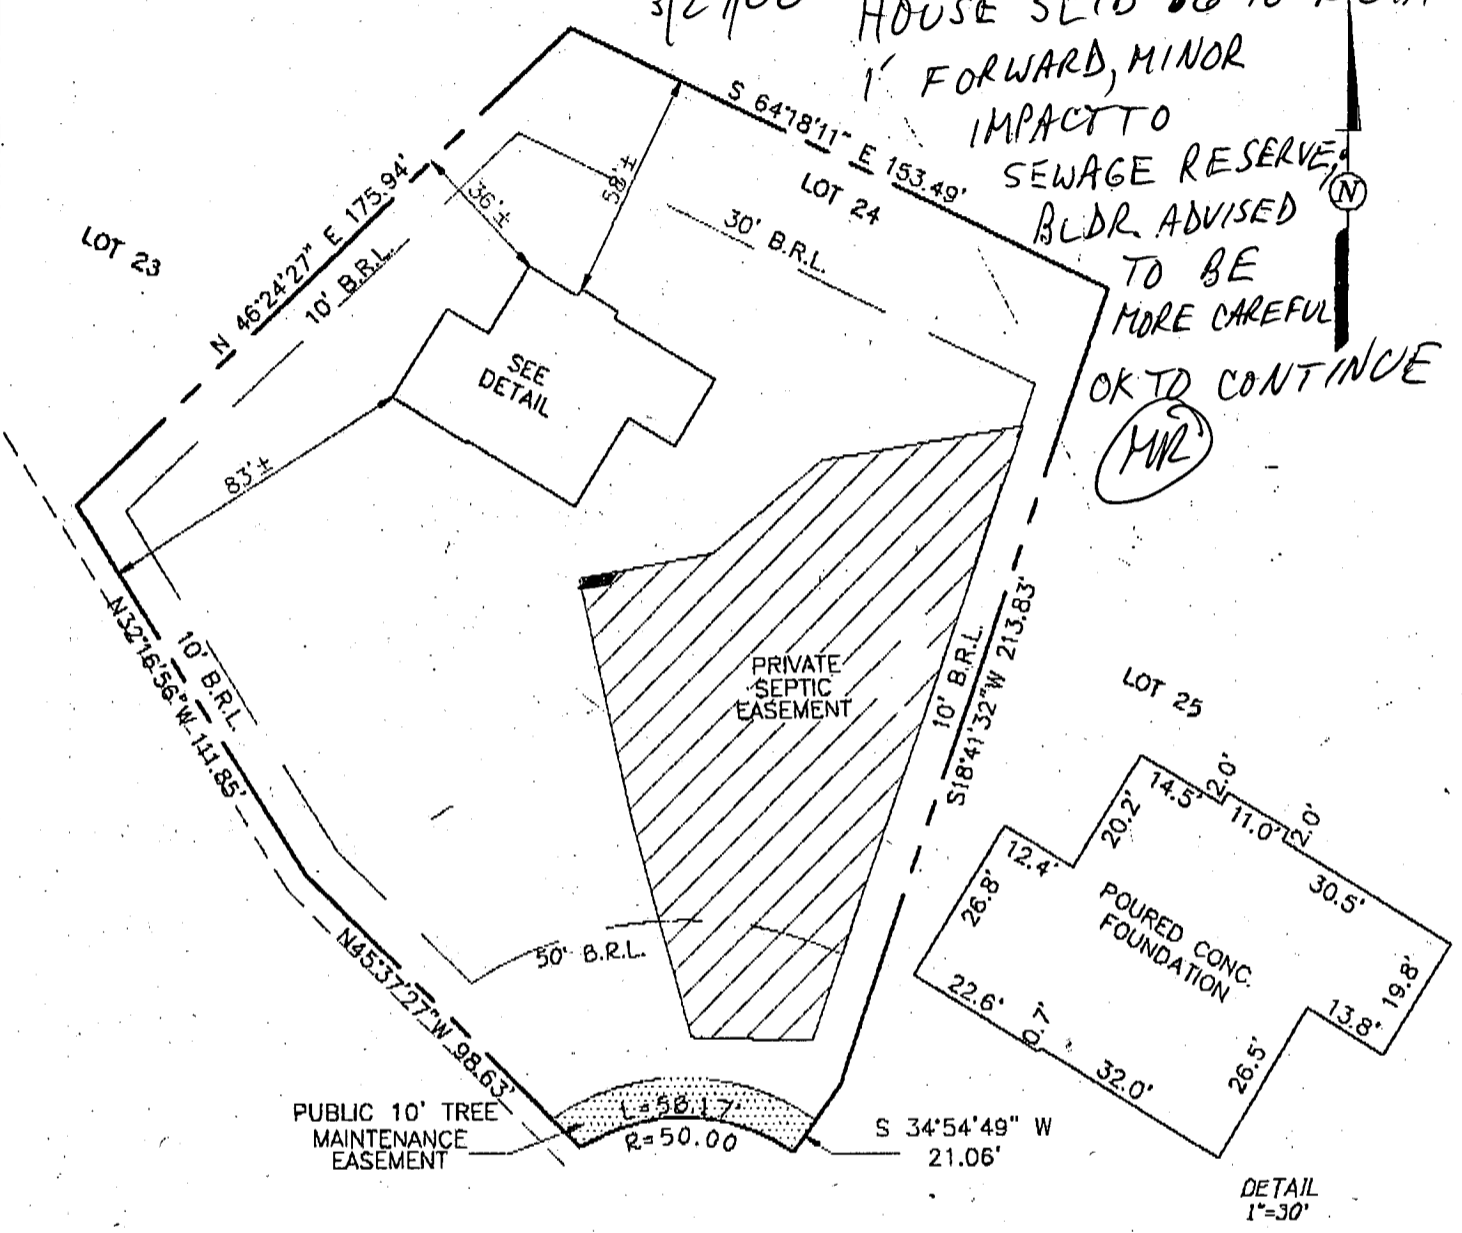 HOUSE SLID
1' FORWARD, MINOR
IMPACT TO
SEWAGE RESERVE,
BLDR. ADVISED
TO BE
MORE CAREFUL
OK TO CONTINUE
MR
N
S 64°18'11" E 153.49'
LOT 24
58'±
36'±
30' B.R.L.
N 46°24'27" E 175.94'
10' B.R.L.
LOT 23
SEE
DETAIL
83'±
N32°16'56"W 111.85'
10' B.R.L.
PRIVATE
SEPTIC
EASEMENT
10' B.R.L.
S18°41'32"W 213.83'
LOT 25
50' B.R.L.
N45°37'27"W 98.63'
PUBLIC 10' TREE
MAINTENANCE
EASEMENT
L=58.17'
R=50.00
S 34°54'49" W
21.06'
14.5'
2.0'
11.0'
2.0'
20.2'
12.4'
30.5'
26.8'
POURED CONC.
FOUNDATION
19.8'
13.8'
22.6'
0.7'
32.0'
26.5'
DETAIL
1"=30'